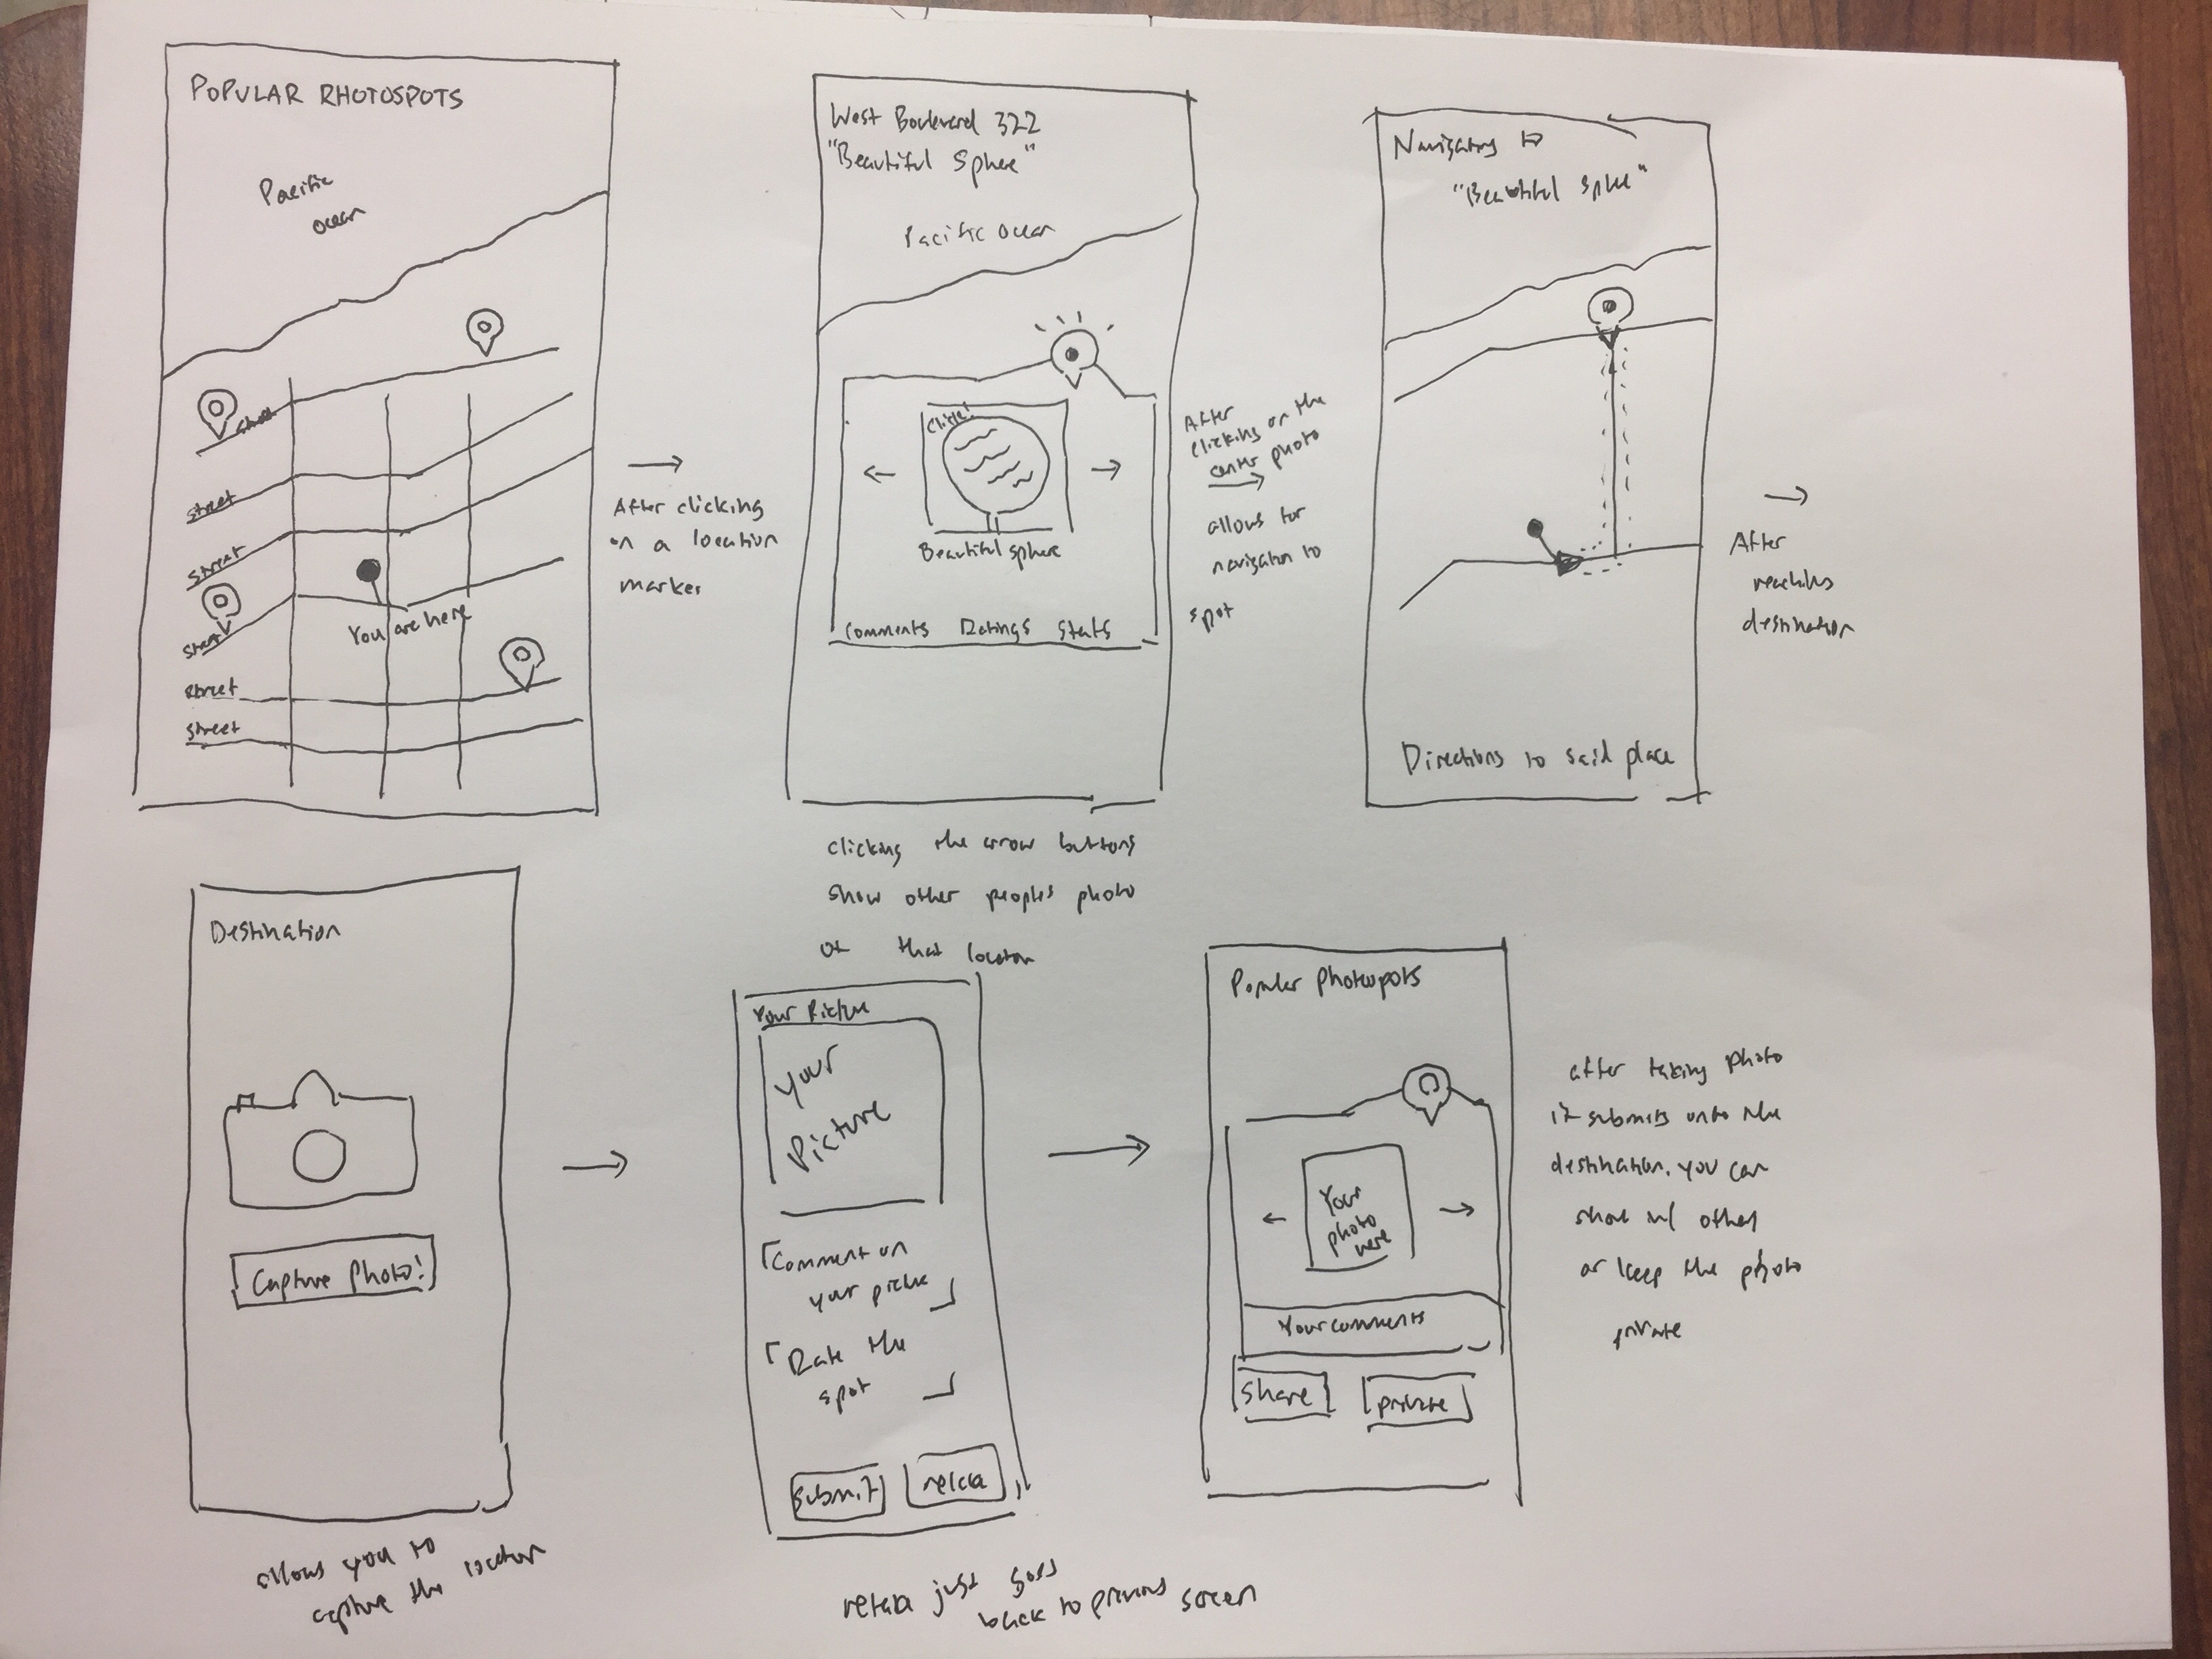 POPULAR PHOTOSPOTS
Pacific
ocean
street
street
street
street
You are here
street
street
→
After clicking
on a location
marker
West Boulevard 322
"Beautiful Sphere"
Pacific Ocean
Click!
← →
Beautiful sphere
Comments Ratings Stats
clicking the arrow buttons
show other peoples photo
of that location
After
clicking on the
center photo
→
allows for
navigation to
spot
Navigating to
"Beautiful Sphere"
Directions to said place
→
After
reaching
destination
Destination
Capture Photo!
allows you to
capture the location
→
Your Picture
Your
Picture
Comment on
your picture
Rate the
spot
submit retake
retake just goes
back to previous screen
→
Popular Photospots
← →
Your
photo
here
Your comments
Share private
after taking photo
it submits onto the
destination. you can
share w/ other
or keep the photo
private